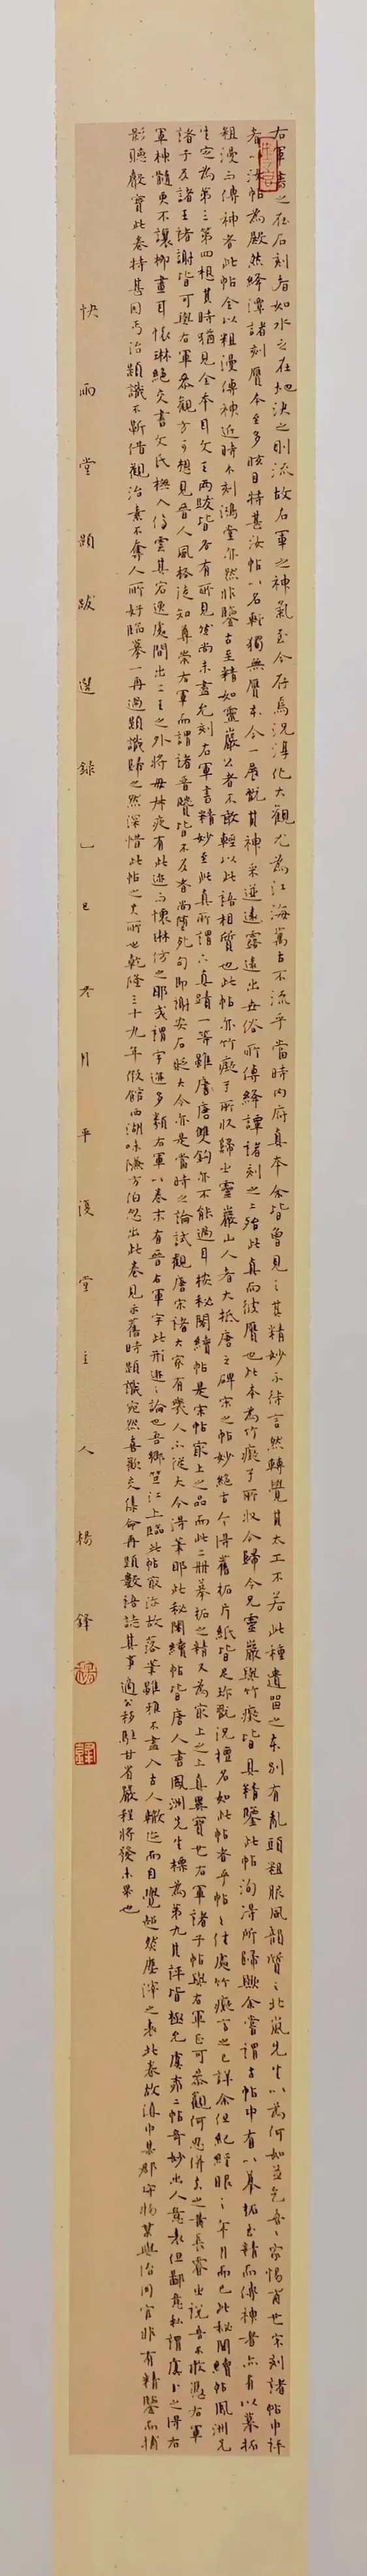 右軍書之在石刻者如水之在地決之則流故右軍之神氣至今存焉況淳化大觀尤為江海萬古不流乎當時內府真本余皆曾見之其精妙不待言然轉覺其太工不若此種遺留之本別有亂頭粗服風韻質之北嵐先生以為何如並乞吾家惕甫也宋刻諸帖中評
者以汝帖為厥然絳潭諸刻贗本至多眩目特甚汝帖以名輕獨無贗本今一展翫其神采遒遠霱遠出世俗所傳絳譚諸刻之上殆此真而彼贗也此本為竹癡子所收今歸令兄靈巖與竹癡皆具精鑒此帖洵得所歸歟余嘗謂古帖中有以摹拓至精而傳神者亦有以摹拓
粗漫而傳神者此帖全以粗漫傳神近時不刻鴻堂亦然非鑒古至精如靈巖公者不敢輕以此語相質也此帖亦竹癡子所收歸之靈巖山人者大抵唐之碑宋之帖妙絕古今得舊拓片紙皆足珍翫況擅名如此帖者乎帖之佳處竹癡言之已詳余但紀經眼之年月而已此秘閣續帖鳳洲先
生定為第三第四想其時猶見全本自文王兩跋皆各有所見然尚未盡允刻右軍書精妙至此真所謂下真蹟一等雖廬唐雙鉤亦不能過耳按秘閣續帖是宋帖最上之品而此二冊摹拓之精又為最上之上真異寶也右軍諸子帖與右軍正可恭觀何思併去之黃長睿出說吾不敢憑右軍
諸子及諸王諸謝皆可與右軍參觀方可想見晉人風格徒知尊崇右軍而謂諸晉賢皆不及者尚墮死句即謝安石貶大令亦是當時之論試觀唐宋諸大家有幾人不從大令得筆耶此秘閣續帖皆唐人書鳳洲先生標為第九其評皆極允虞彿二帖奇妙出人意表但鄙意私謂虞書之得右
軍神髓更不讓柳畫耳懷琳絕交書文氏橅入停雲其宕逸處閒出二王之外將毋叔夜有此迹而懷琳仿之耶或謂字迹多類右軍以卷末有晉右軍字此形迹之論也吾鄉笪江上臨此帖最深故落筆雖穠不盡入古人轍迹而自覺超然塵滓之表此卷故滇中某郡守物某與治同官非有精鑒而惟
影聽嚴寶此卷特甚因丐治題識不斬借觀治素不奪人所好臨摹一再過題識歸之然深惜此帖之失所也乾隆三十九年假館西湖味隒方伯忽出此卷見示舊時題識宛然喜歡交集命再題數語誌其事適公移駐甘省嚴程將發未果也
快雨堂題跋選錄乙巳冬月平復堂主人楊鋒